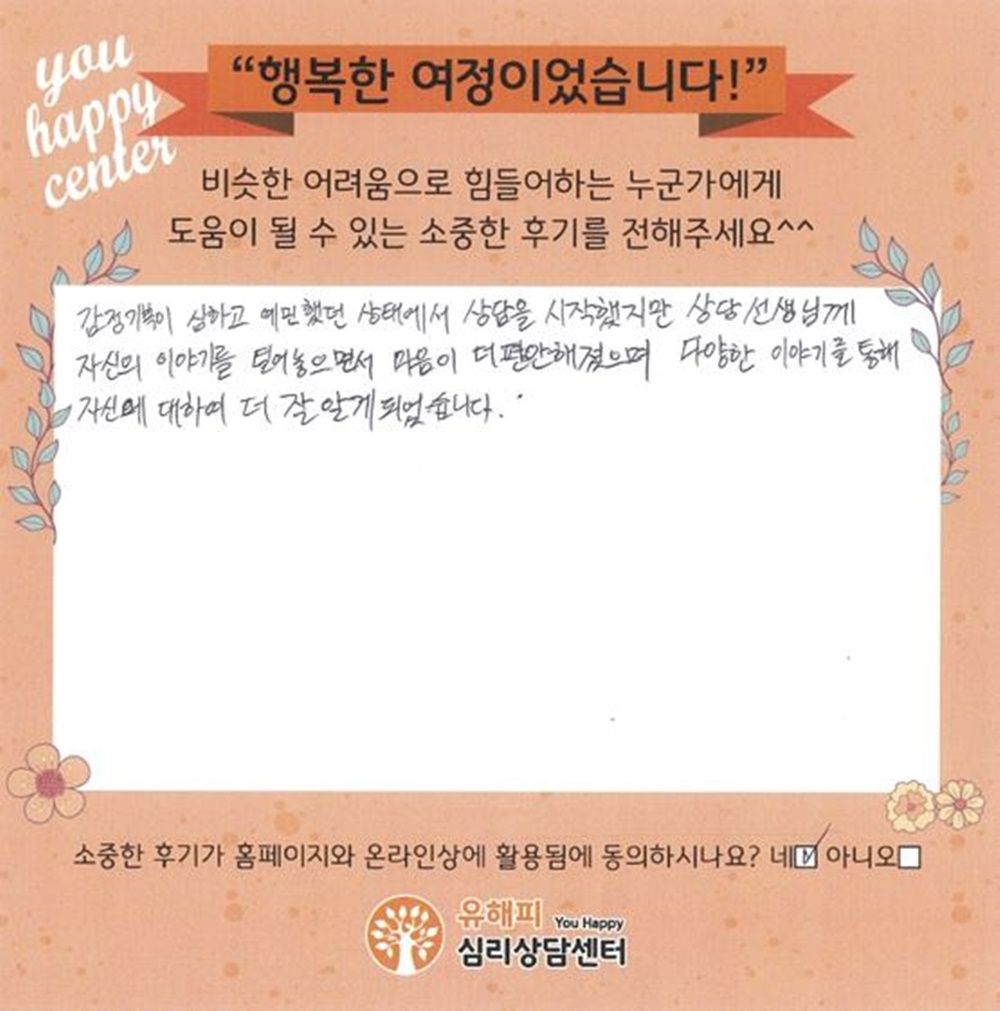 you
happy
center
“행복한 여정이었습니다!”
비슷한 어려움으로 힘들어하는 누군가에게
도움이 될 수 있는 소중한 후기를 전해주세요^^
감정기복이 심하고 예민했던 상태에서 상담을 시작했지만 상담선생님께
자신의 이야기를 털어놓으면서 마음이 더편안해졌으며 다양한 이야기를 통해
자신에 대하여 더 잘 알게 되었습니다.
소중한 후기가 홈페이지와 온라인상에 활용됨에 동의하시나요? 네☑ 아니오☐
유해피 You Happy
심리상담센터